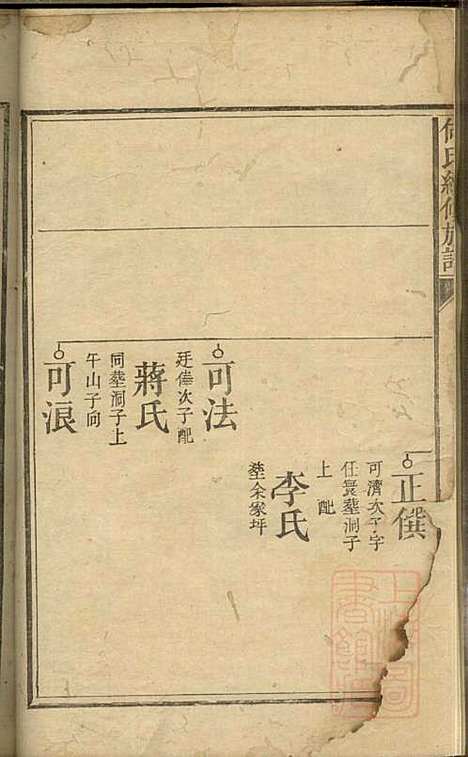 何氏續修族譜
正僎
可濟次子字
任寰塟洞子
上配
李氏
塟余家坪
可法
廷俸次子配
蔣氏
同塟洞子上
午山子向
可浪